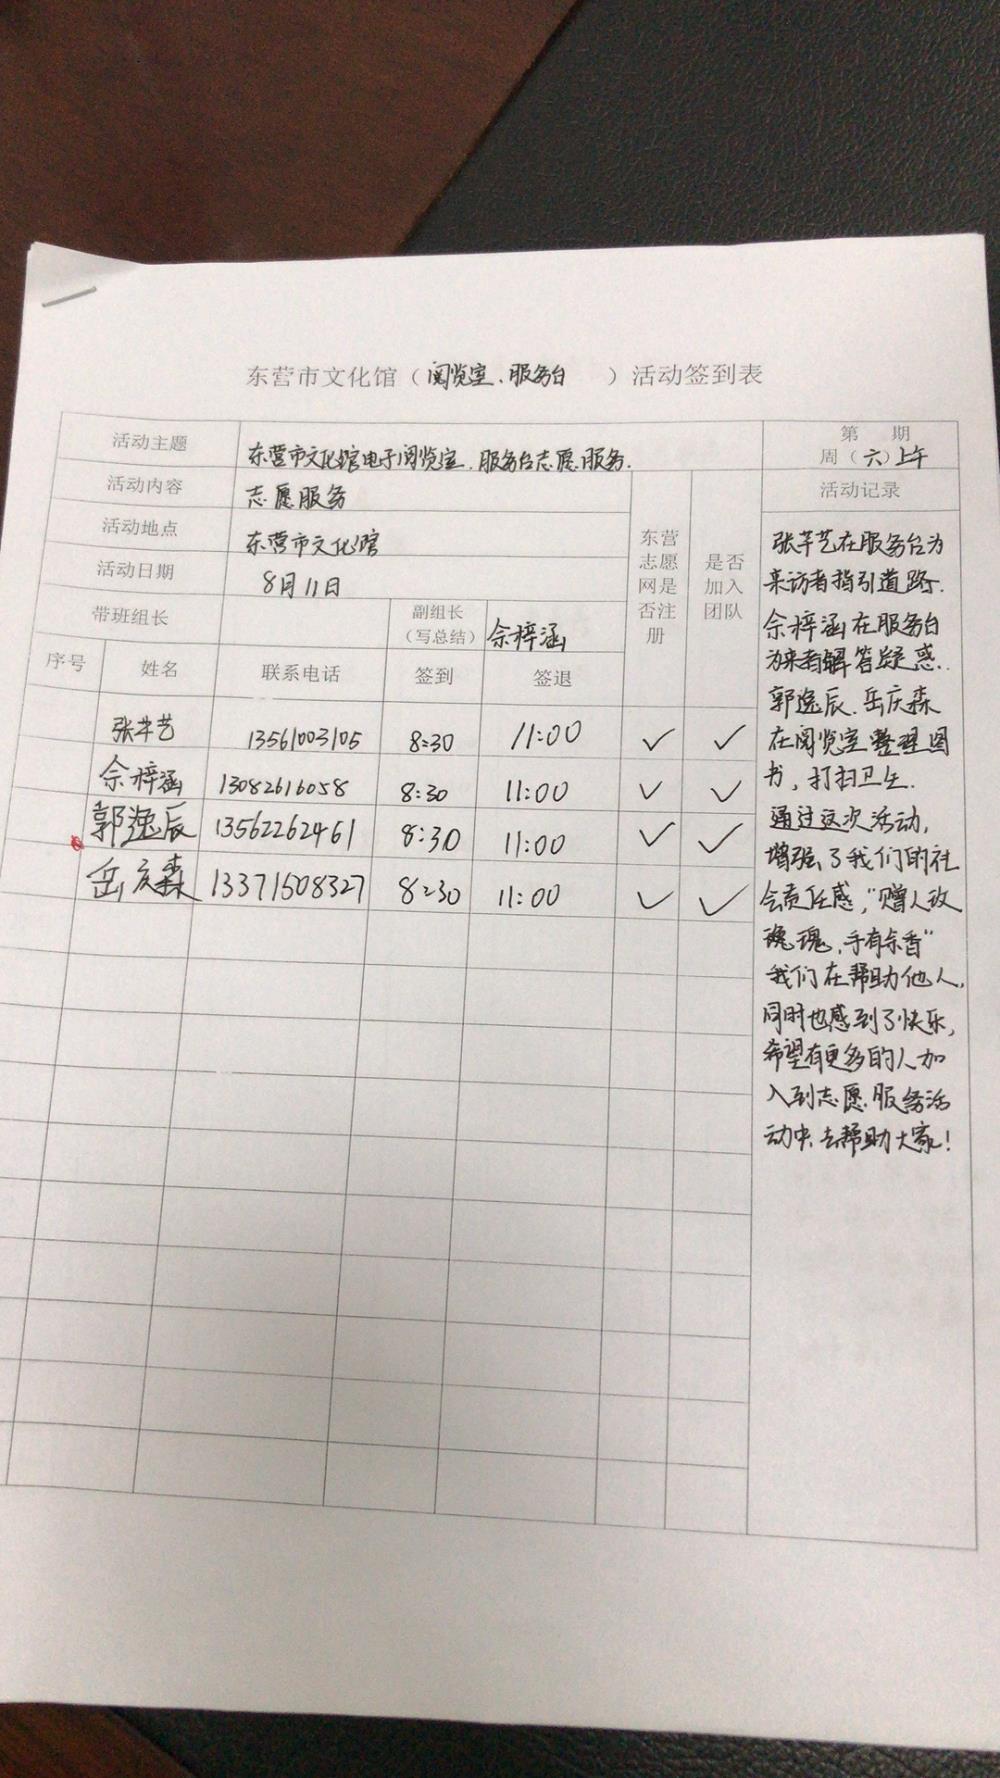 东营市文化馆（阅览室、服务台 ）活动签到表
活动主题 东营市文化馆电子阅览室、服务台志愿服务. 第 期
周（六）上午
活动内容 志愿服务 东营志愿网是否注册 是否加入团队 活动记录
活动地点 东营市文化馆
活动日期 8月11日
带班组长 副组长（写总结） 佘梓涵
序号 姓名 联系电话 签到 签退
张芊艺 13561003105 8:30 11:00 ✓ ✓
佘梓涵 13082616058 8:30 11:00 ✓ ✓
郭逸辰 13562262461 8:30 11:00 ✓ ✓
岳庆森 13371508327 8:30 11:00 ✓ ✓
张芊艺在服务台为
来访者指引道路.
佘梓涵在服务台
为来者解答疑惑.
郭逸辰、岳庆森
在阅览室整理图
书，打扫卫生.
通过这次活动，
增强了我们的社
会责任感，“赠人玫
瑰，手有余香”
我们在帮助他人，
同时也感到了快乐，
希望有更多的人加
入到志愿服务活
动中，去帮助大家！